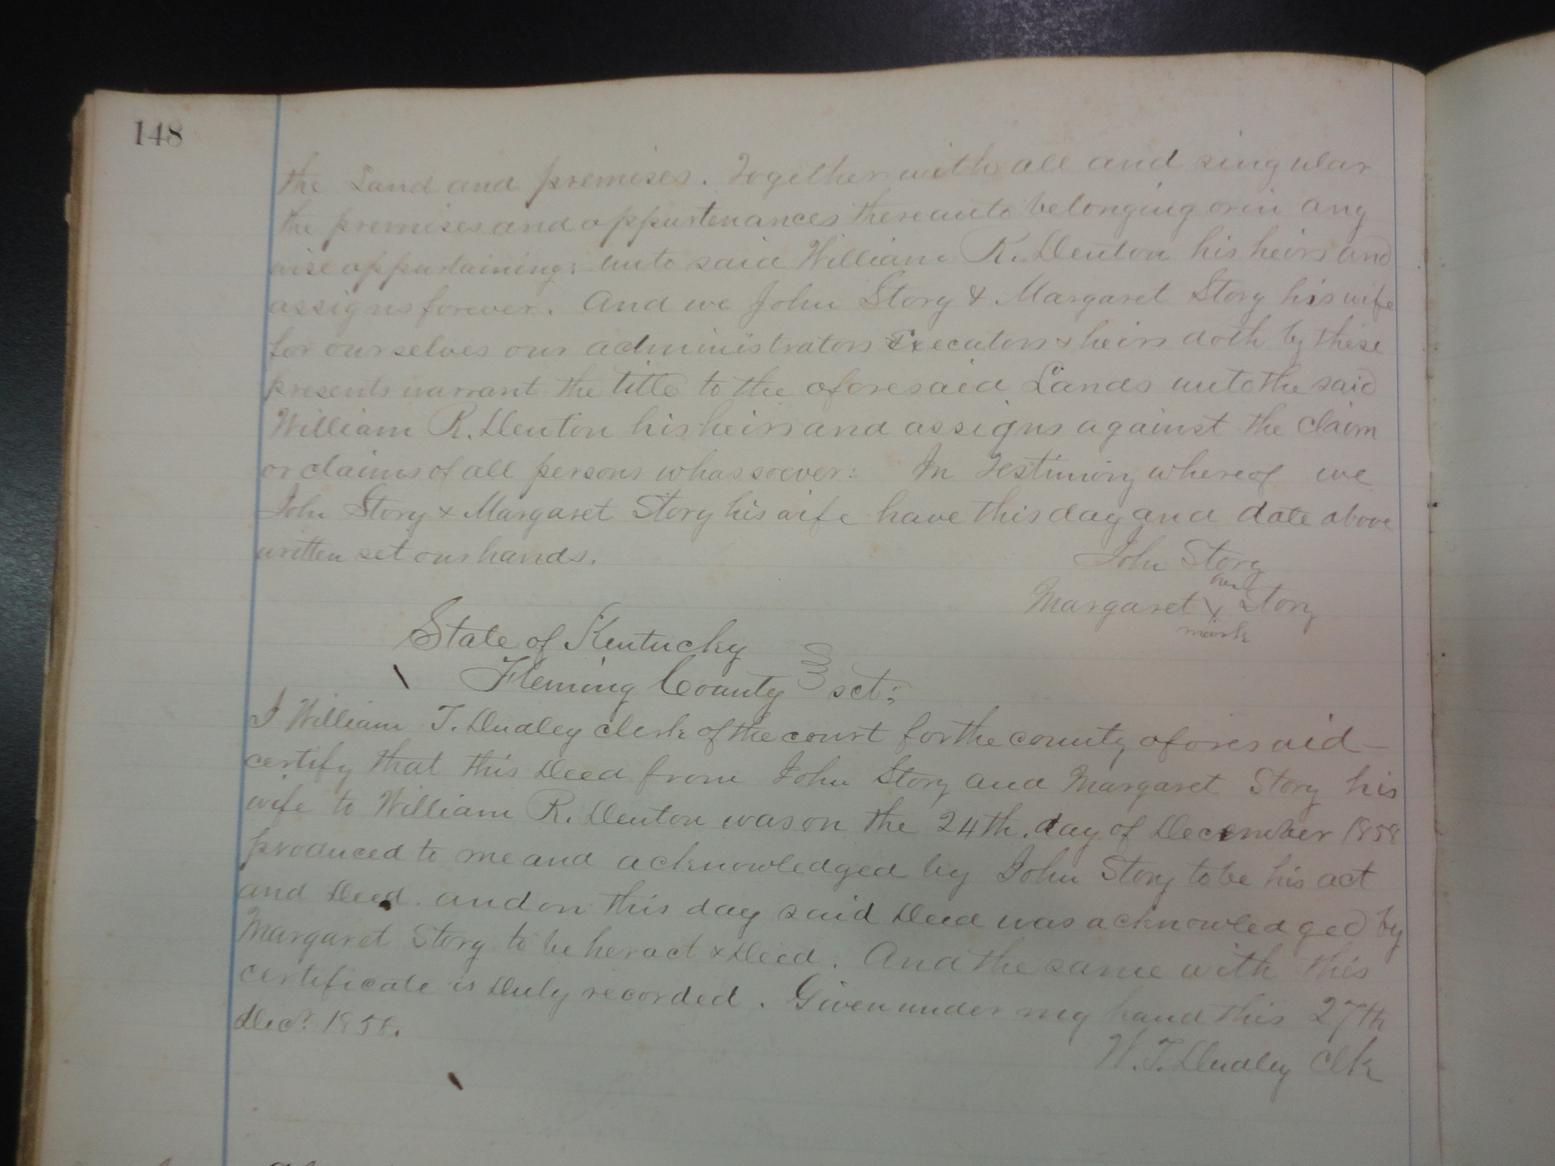 148
the Land and premises. Together with all and singular
the premises and appurtenances thereunto belonging or in any
wise appertaining; unto said William R. Denton his heirs and
assigns forever. And we John Story & Margaret Story his wife
for ourselves our administrators Executors & heirs doth by these
presents warrant the title to the aforesaid Lands unto the said
William R. Denton his heirs and assigns against the claim
or claims of all persons whassoever: In Testimony whereof we
John Story & Margaret Story his wife have this day and date above
written set our hands.
John Story
Margaret X Story
mark
State of Kentucky
Fleming County sct:
I William T. Dudley clerk of the court for the county aforesaid
certify that this Deed from John Story and Margaret Story his
wife to William R. Denton was on the 24th. day of December 1858
produced to me and acknowledged by John Story to be his act
and Deed. and on this day said Deed was acknowledged by
Margaret Story to be her act & Deed. And the same with this
certificate is Duly recorded. Given under my hand this 27th
Decr. 1858.
W. T. Dudley Clk